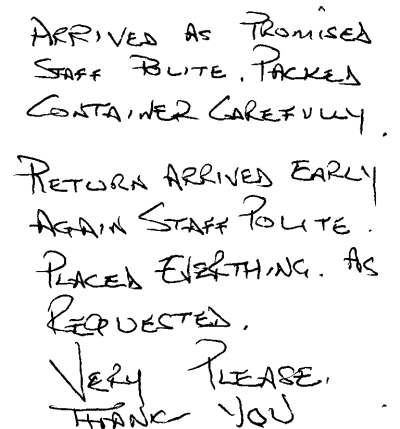 ARRIVED AS PROMISED
STAFF POLITE. PACKED
CONTAINER CAREFULLY.
RETURN ARRIVED EARLY
AGAIN STAFF POLITE.
PLACED EVERTHING. AS
REQUESTED.
VERY PLEASE.
THANK YOU